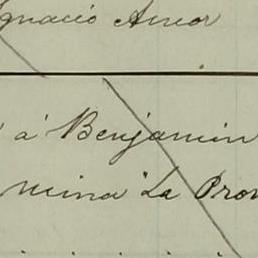 Ignacio Amor
á Benjamin
mina "La Prov